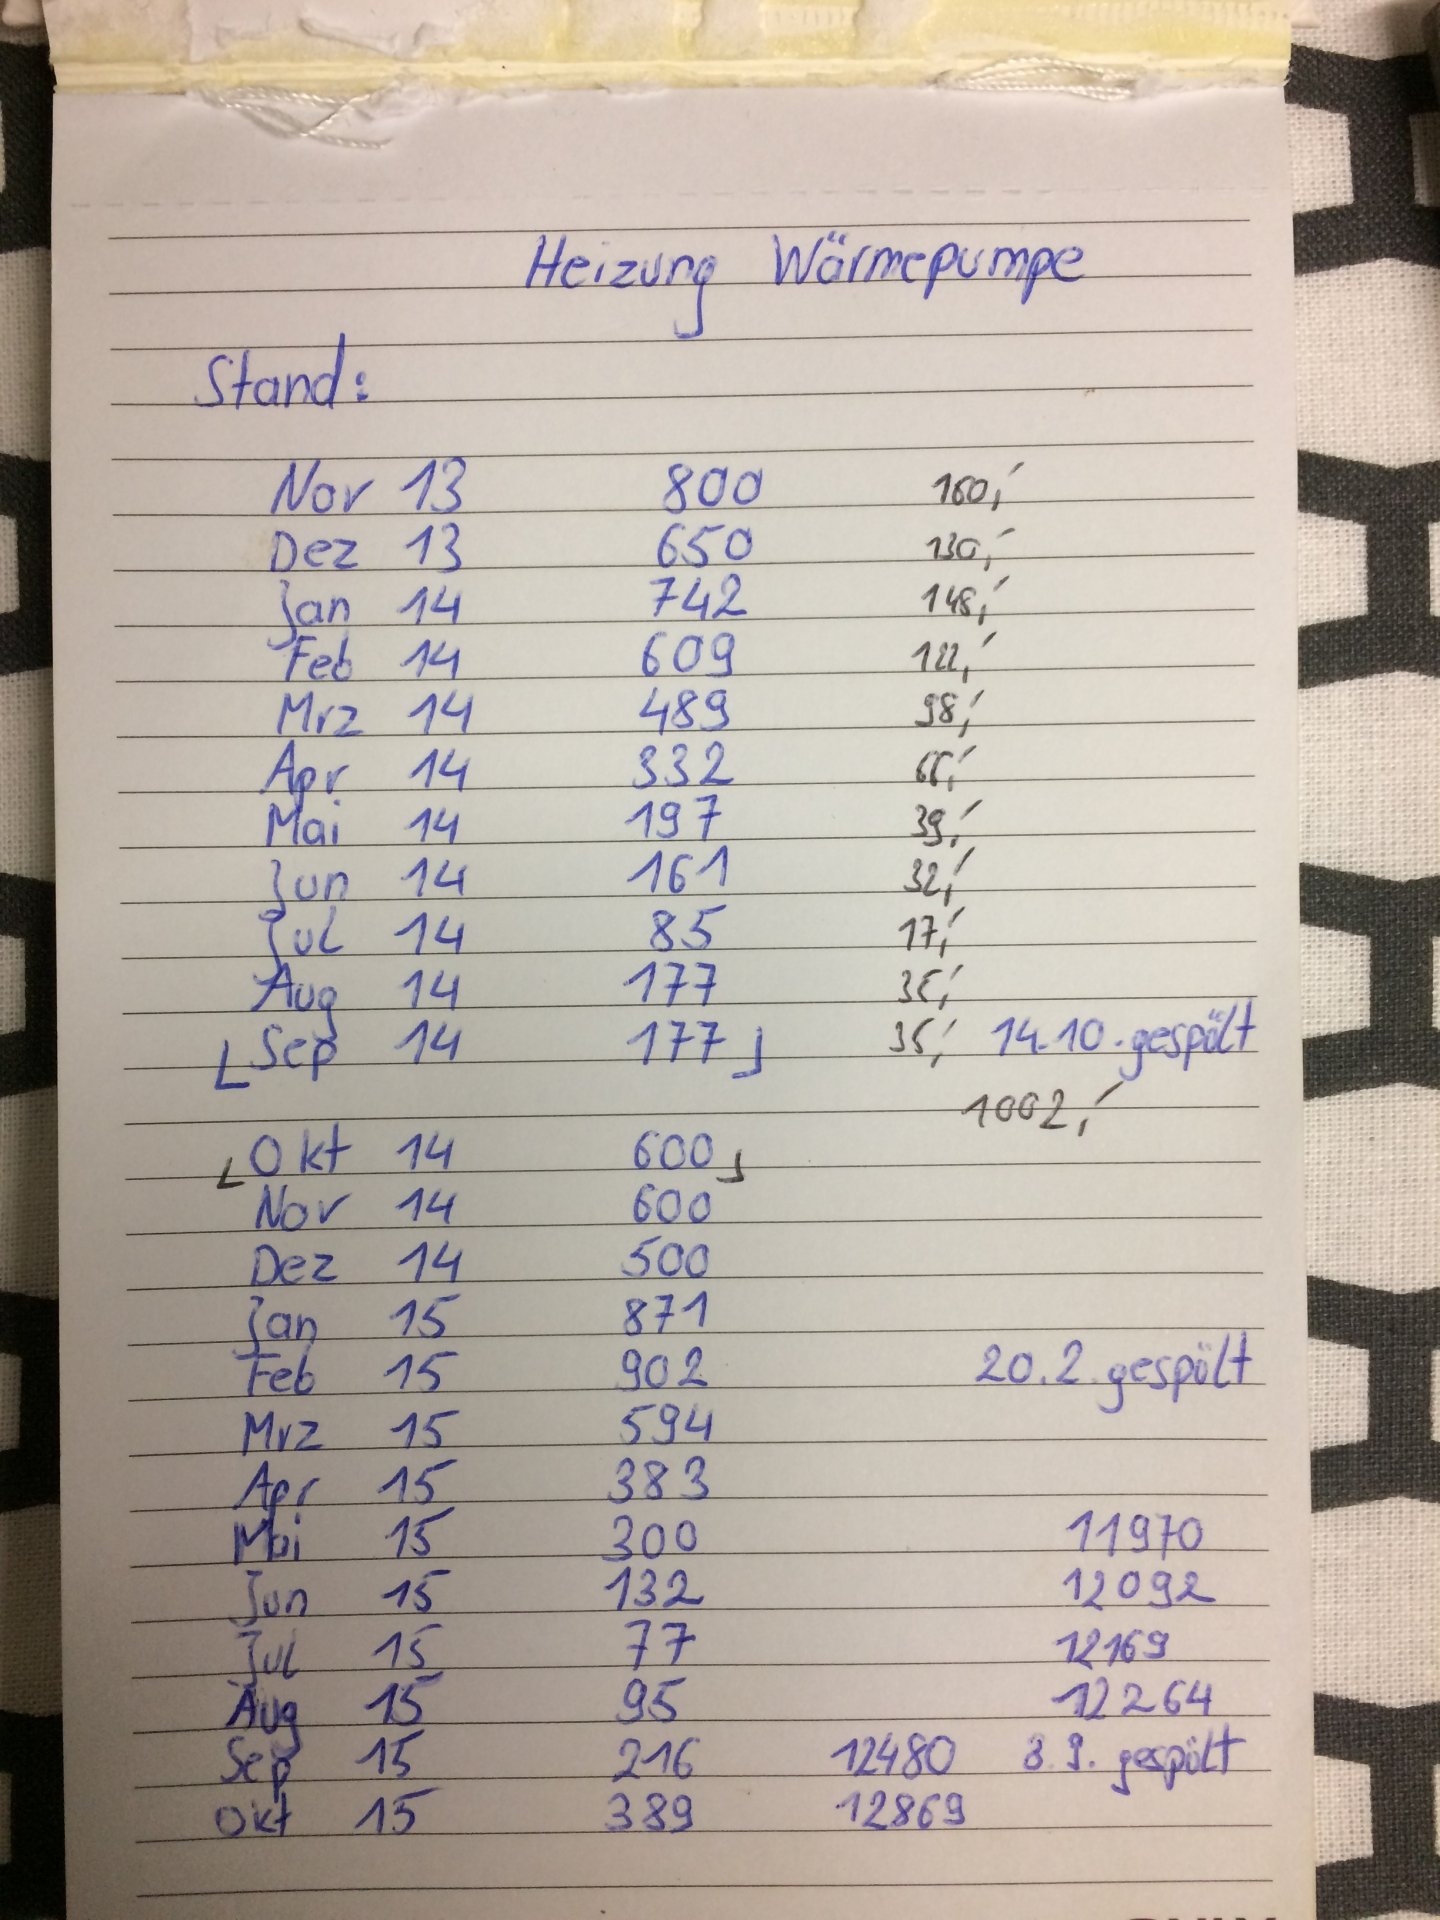 Heizung Wärmepumpe
Stand:
Nov 13 800 160,-
Dez 13 650 130,-
Jan 14 742 148,-
Feb 14 609 122,-
Mrz 14 489 98,-
Apr 14 332 66,-
Mai 14 197 39,-
Jun 14 161 32,-
Jul 14 85 17,-
Aug 14 177 35,-
Sep 14 177 35,- 14.10. gespült
1002,-
Okt 14 600
Nov 14 600
Dez 14 500
Jan 15 871
Feb 15 902 20.2. gespült
Mrz 15 594
Apr 15 383
Mai 15 300 11970
Jun 15 132 12092
Jul 15 77 12169
Aug 15 95 12264
Sep 15 216 12480 8.9. gespült
Okt 15 389 12869